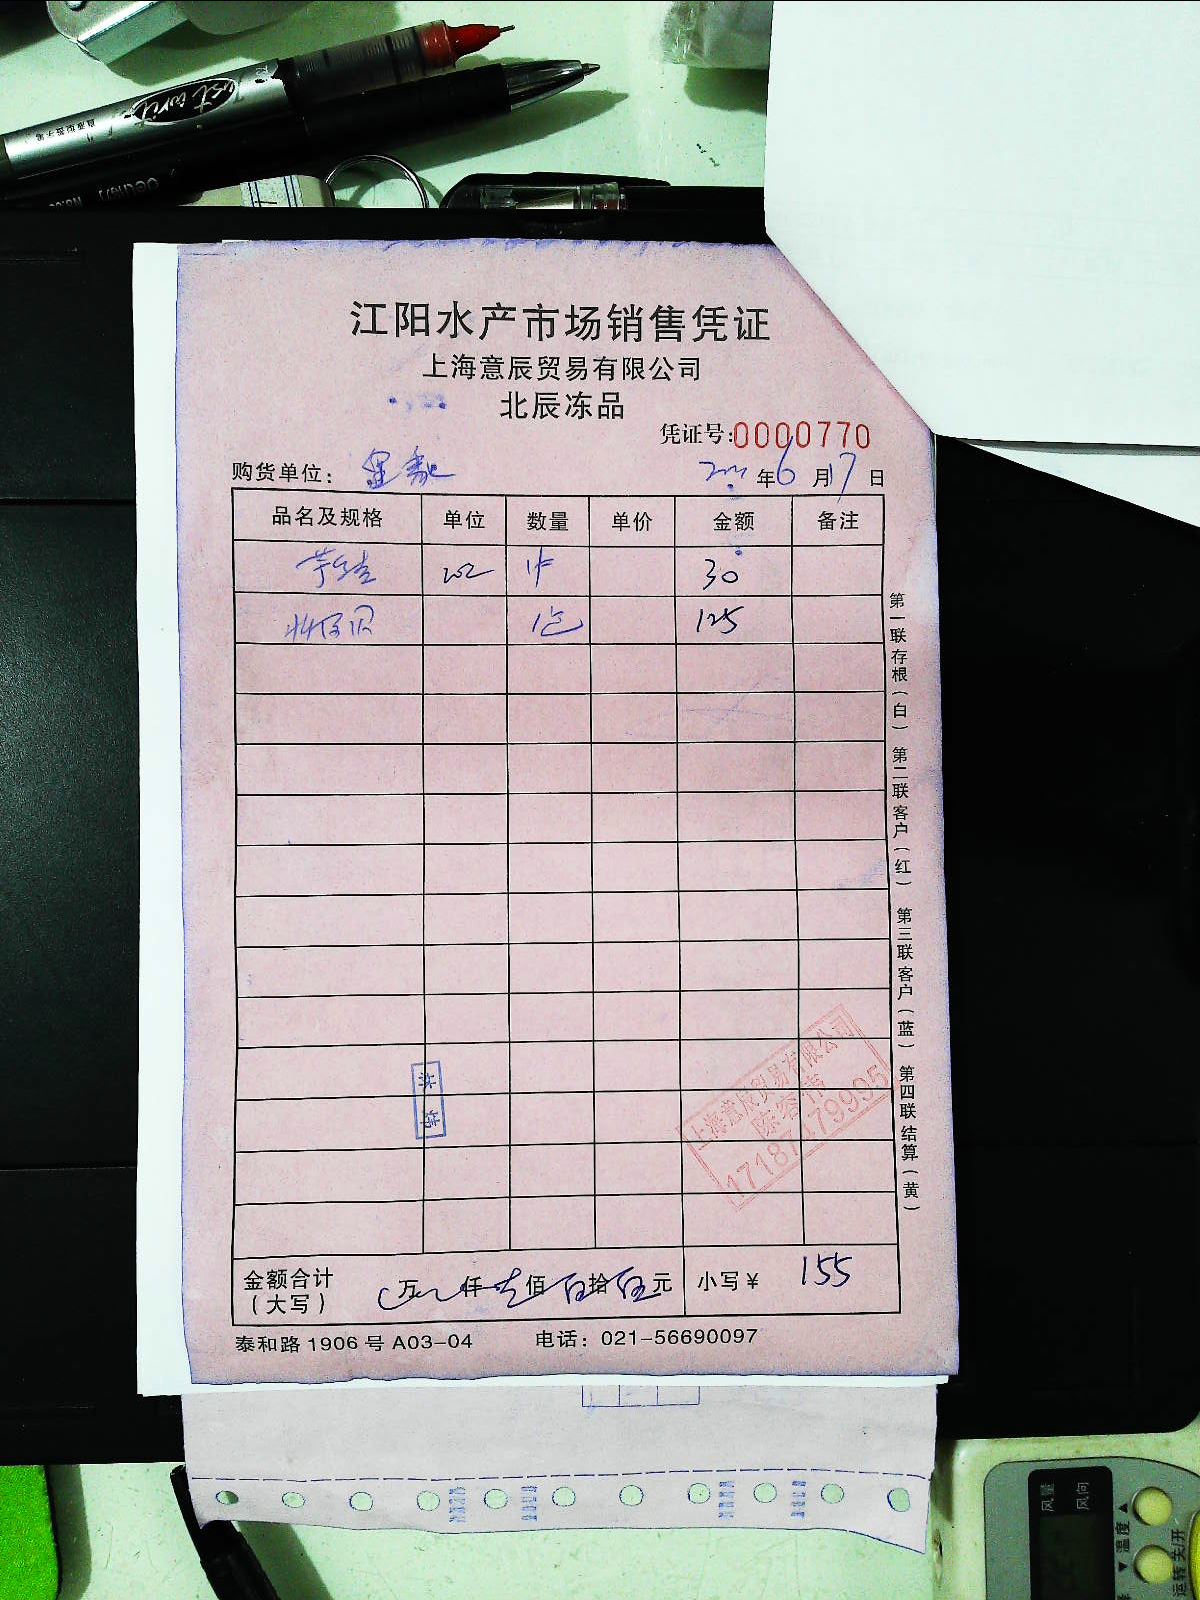 江阳水产市场销售凭证
上海意辰贸易有限公司
北辰冻品
凭证号:0000770
购货单位:
年6月17日
品名及规格 单位 数量 单价 金额 备注
30
125
第一联存根(白) 第二联客户(红) 第三联客户(蓝) 第四联结算(黄)
上海意辰贸易有限公司
17187179995
金额合计 万 仟 佰 拾 伍元 小写¥ 155
(大写)
泰和路1906号A03-04 电话:021-56690097
风量 风向
温度
运转关/开